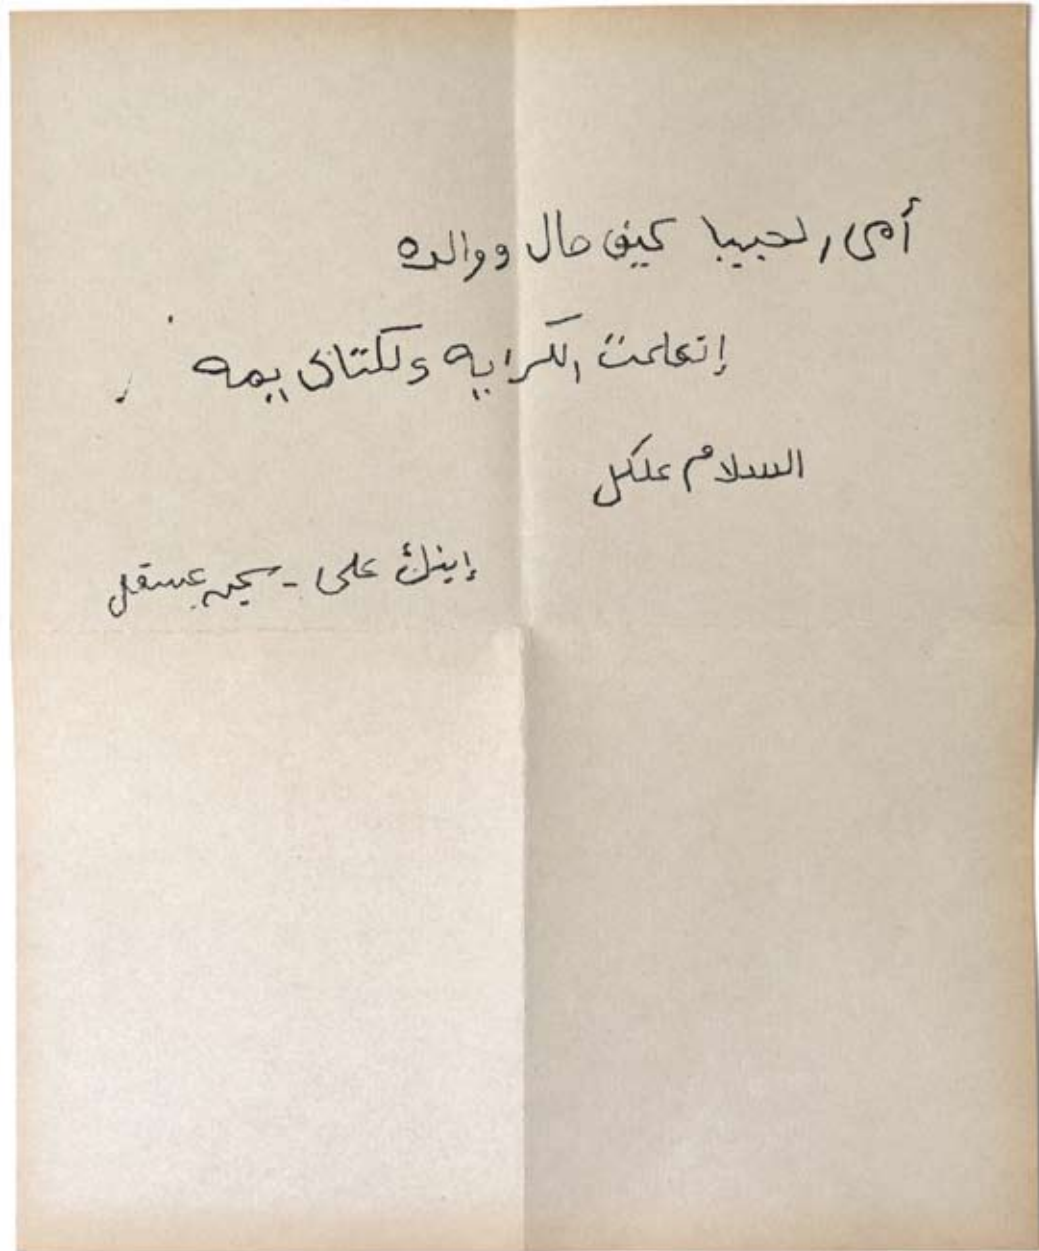 أمي الحبيبا كيف حال ووالده
إتعلمت الكرايه ولكتابى يمه
السلام علكل
إبنك على - سجن عسقل